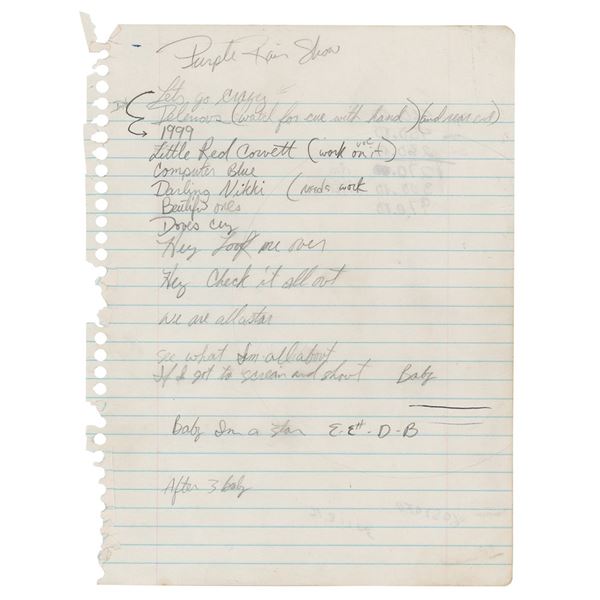 Purple Rain Show
Lets go crazy
Delerious (watch for cue with hand) (and rear end)
1999
Little Red Corvett (work voc on it)
Computer Blue
Darling Nikki (needs work
Beatiful ones
Doves cry
Hey Look me over
Hey Check it all out
we are all a star
see what Im all about
If I got to scream and shout Baby
baby Im a star E-E# - D - B
After 3 baby